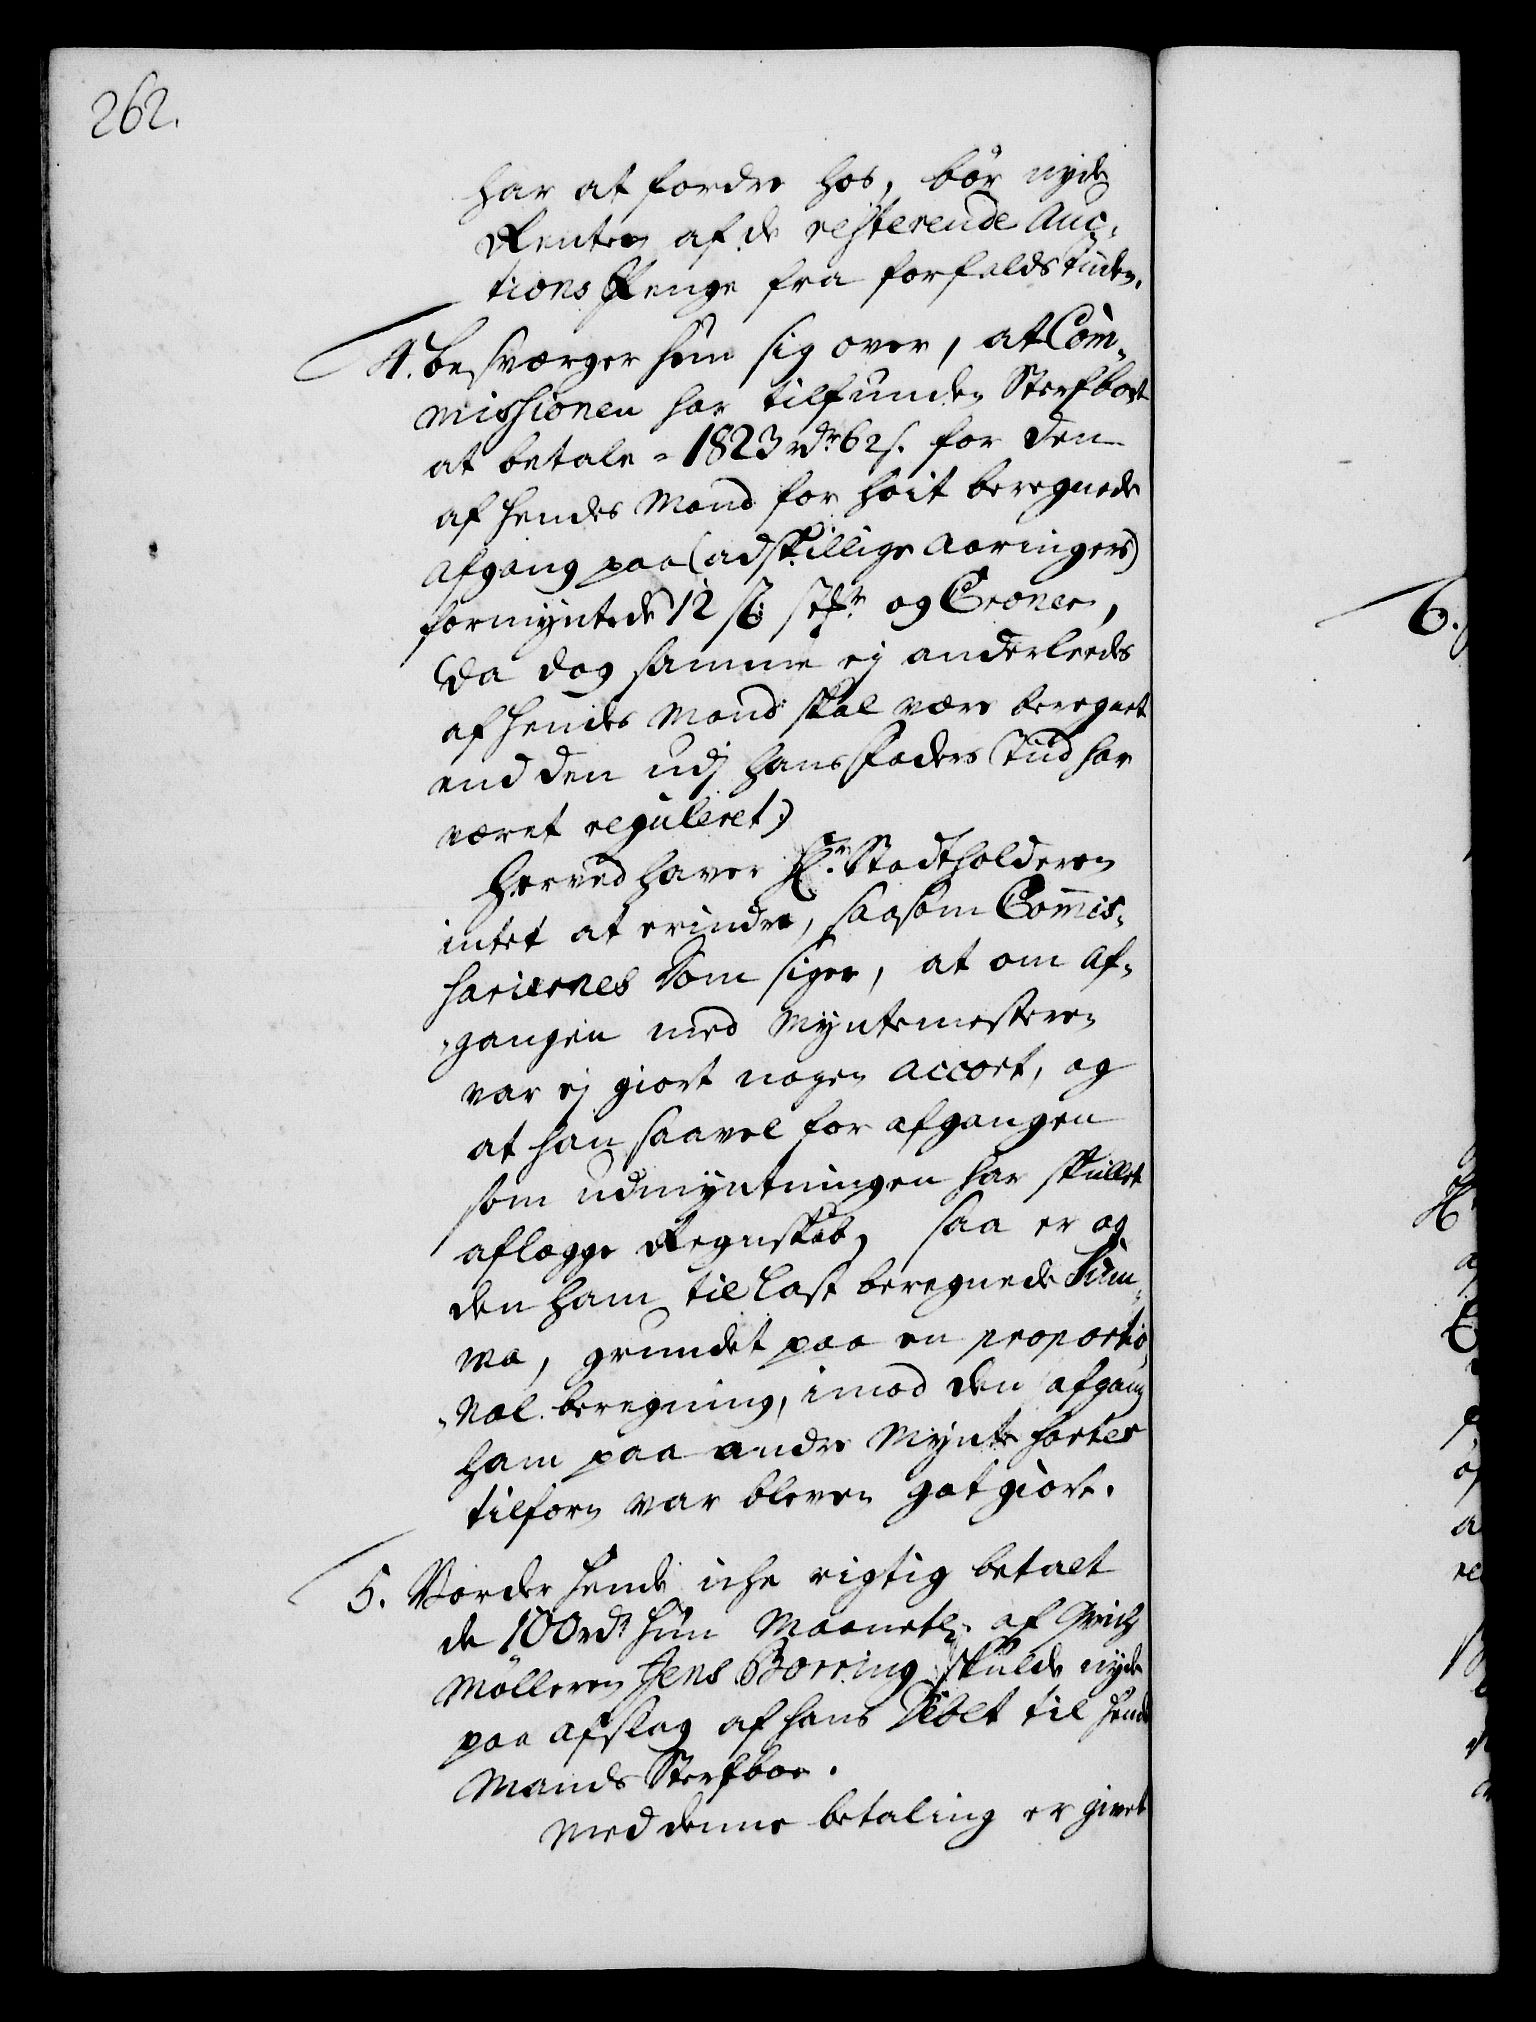 262.
har at fordre hos, bør nyde
Renten af de resterende Auc-
tions Penge fra forfalds tiden.
4. besværger hun sig over, at Com-
missionen har tilfunden Sterfboet
at betale - 1823 rdr 62 s. for den
af hendes Mand for høit beregnede
afgang paa (adskillige Aaringers)
formyntede 12 s. og Croner,
(da dog samme ej anderleedes
af hendes Mand skal være beregnet
end den udj hans Faders Tiid har
været reguleret.)
herved haver Hr. Stadtholderen
intet at erindre, saasom Commis-
sariernes Dom siger, at om Af-
gangen med Myntemesteren
var ej giort nogen accort, og
at han saavel for afgangen
som udmyntningen har skullet
aflegge Regnskab, saa er og
den ham til Last beregnede Sum-
ma, grundet paa en proportio-
nal beregning, imod den afgang
ham paa andre Mynte sorter
tilforn var bleven godtgiort.
5. Vorder hende iche rigtig betalt
de 100 rdr hun Maanetl. af
Mølleren Jens Borring skulde nyde
paa Afslag af hans Debet til hendes
Mands Sterfboe.
Med denne betaling er givet
6.